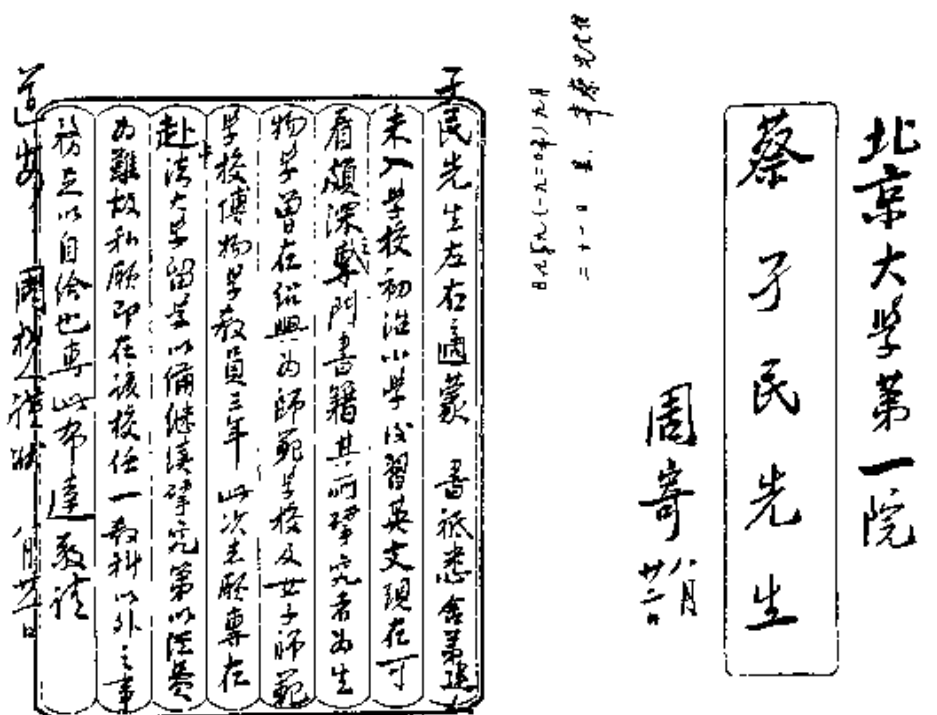 北京大学第一院
蔡孑民先生
周寄
八月
廿二日
孑民先生左右適蒙　書祗悉舍弟建人
未入学校初治小学後習英文現在可
看頗深之専門書籍其所研究者為生
物学曽在紹興為師範学校及女子師範
学校博物学教員三年　此次志願専在
赴中法大学留学以備継續研究第以経費
為難故私願即在該校任一教科以外之事
務足以自給也専此布達敬請
道安　周樹人謹狀　八月廿一日